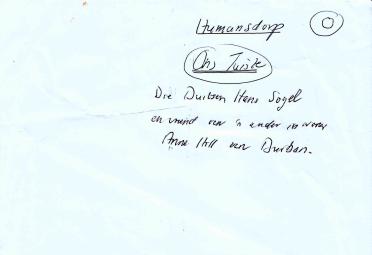 Humansdorp
O
Ons Tuiste
Die Duitser Hans Sogel
en vriend van 'n ander
Anna Hill van Durban.